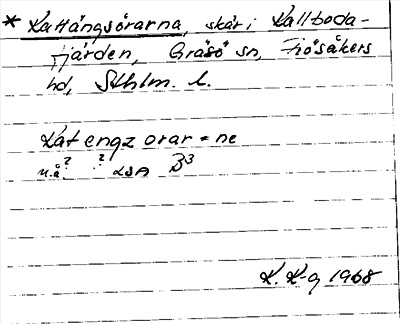 * Kattängsörarna, skär i Kallboda-
fjärden, Gräsö sn, Frösåkers
hd, Sthlm. l.
Kat engz orar = ne
u.å? ? LSA B3
K. K-g 1968